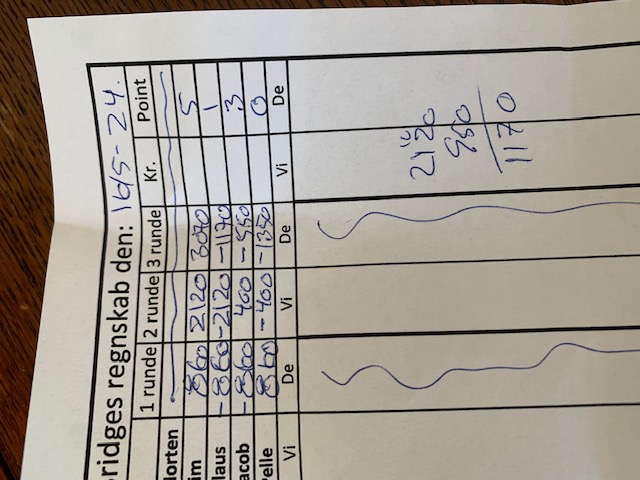 ridges regnskab den: 16/5-24.
1 runde 2 runde 3 runde Kr. Point
orten
im 860 2120 3070 5
laus -860 -2120 -1170 1
acob -860 400 -550 3
elle 860 -400 -1350 0
Vi De Vi De Vi De
2120
950
1170